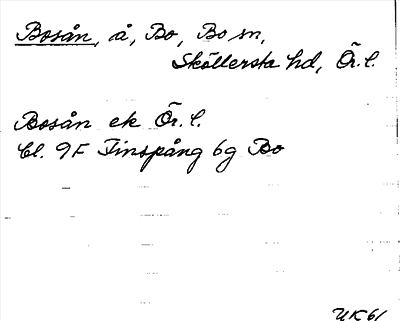 Bosån, å, Bo, Bo sn,
Sköllersta hd, Ör. l.
Bosån ek Ör. l.
Bl. 9F Finspång 6g Bo
UK 61